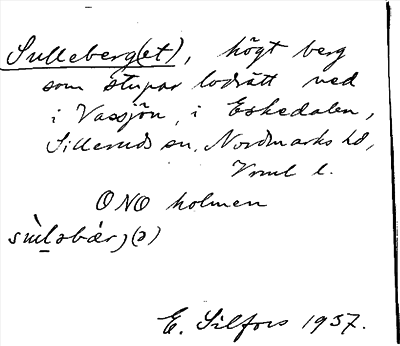 Sulleberg(et), högt berg
som stupar lodrätt ned
i Vassjön, i Eskedalen,
Silleruds sn, Nordmarks hd,
Vrml l.
ONO holmen
E. Silfors 1937.